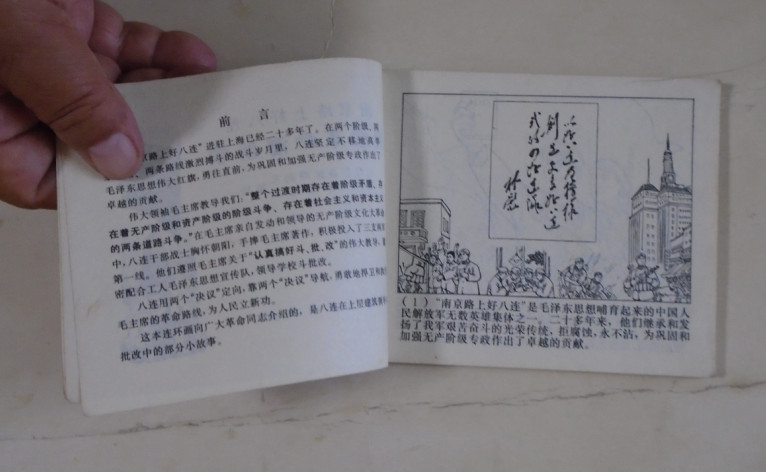 前 言
京路上好八连”进驻上海已经二十多年了。在两个阶级、两
、两条路线激烈搏斗的战斗岁月里，八连坚定不移地高举
毛泽东思想伟大红旗，勇往直前，为巩固和加强无产阶级专政作出了
卓越的贡献。
伟大领袖毛主席教导我们：“整个过渡时期存在着阶级矛盾、存
在着无产阶级和资产阶级的阶级斗争、存在着社会主义和资本主义
的两条道路斗争。”在毛主席亲自发动和领导的无产阶级文化大革命
中，八连干部战士胸怀朝阳，手捧毛主席著作，积极投入了三支两军
第一线。他们遵照毛主席关于“认真搞好斗、批、改”的伟大教导，
密配合工人毛泽东思想宣传队，领导学校斗批改。
八连用两个“决议”定向，靠两个“决议”导航，勇敢地捍卫和
毛主席的革命路线，为人民立新功。
这本连环画向广大革命同志介绍的，是八连在上层建筑
批改中的部分小故事。
（1）“南京路上好八连”是毛泽东思想哺育起来的中国人
民解放军无数英雄集体之一。二十多年来，他们继承和发
扬了我军艰苦奋斗的光荣传统，拒腐蚀，永不沾，为巩固和
加强无产阶级专政作出了卓越的贡献。